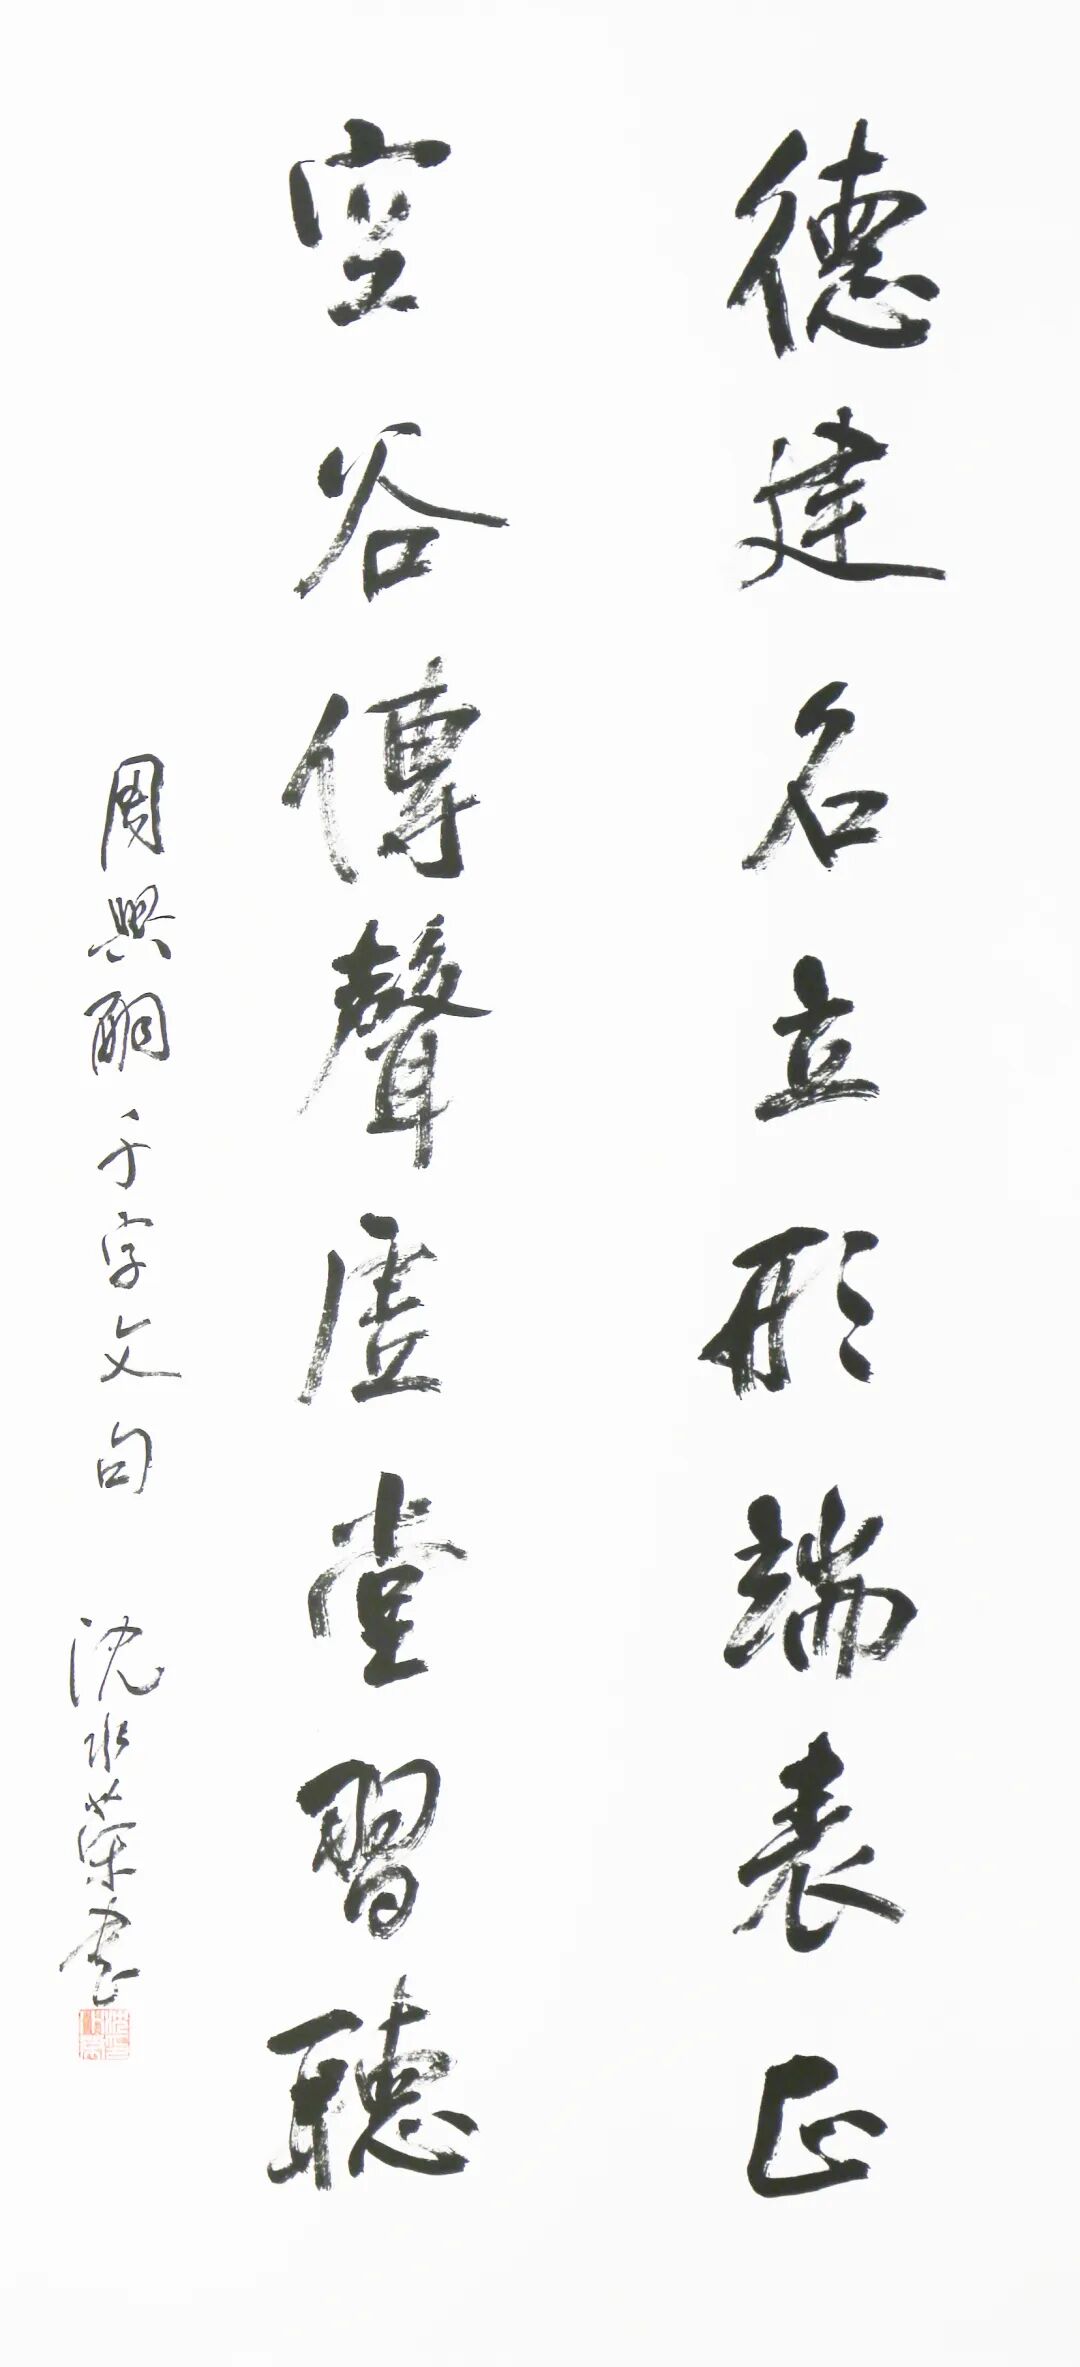 德建名立形端表正
空谷傳聲虛堂習聽
周興嗣千字文句 沈水荣書